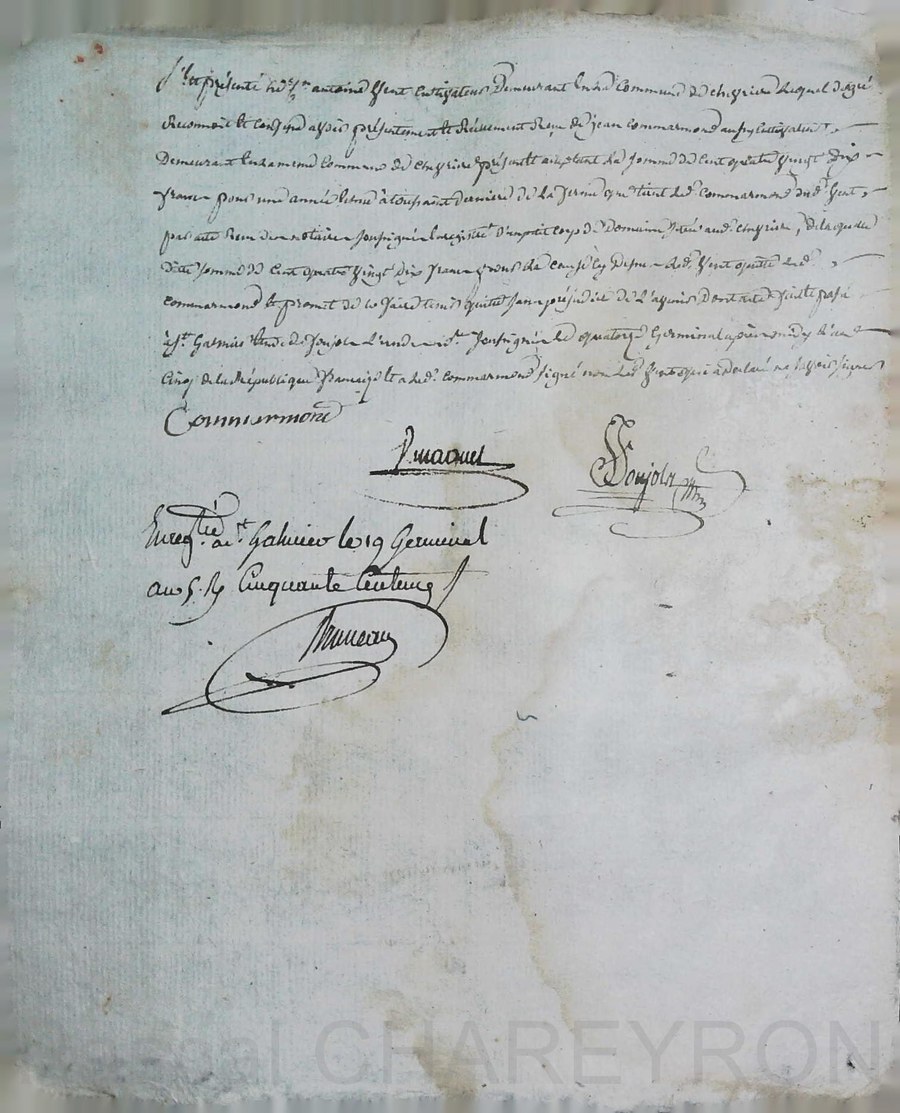 S'est présenté le C.en antoine Cultivateur Demeurant en la Commune de chevrieres Lequel de gré
Reconnoit et Confesse avoir présentement et Réellement Reçu de jean Commarmond aussy Cultivateur
Demeurant En la meme Commune de chevrieres présent et acceptant La somme de Cent quatre Vingt Dix
francs pour une année Echue à toussaint Derniere de La ferme que tient led. Commarmond dud.
par acte Reçu du notaire soussigné Enregistré D'un petit Corps de Domaine aud. chevrieres, de laquelle
Dite somme de Cent quatre Vingt Dix francs led. quitte led.
Commarmond Et promet de le faire tenir quitte sans préjudice de L'affermé fait et passé
à St. Galmier Etude de Soujola L'un des no.res soussignés le quatorze Germinal après midy L'an
Cinq de la République française et a led. Commarmond signé non led. qui a Declaré ne sçavoir signer
Commarmond
Soujola
Enreg.tré à St Galmier le 19 Germinal
an 5. R Cinquante Centimes
Bruneau
Pascal CHAREYRON